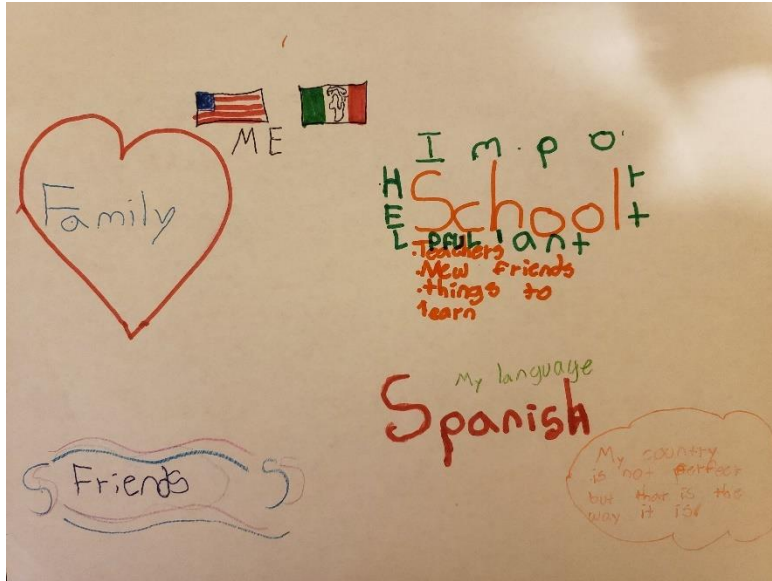 ME
Family
Impo
rt
ant
School
HEL
PFUL
.Teachers
.New friends
.things to
learn
My language
Spanish
Friends
My country
is not
but that is the
way it is